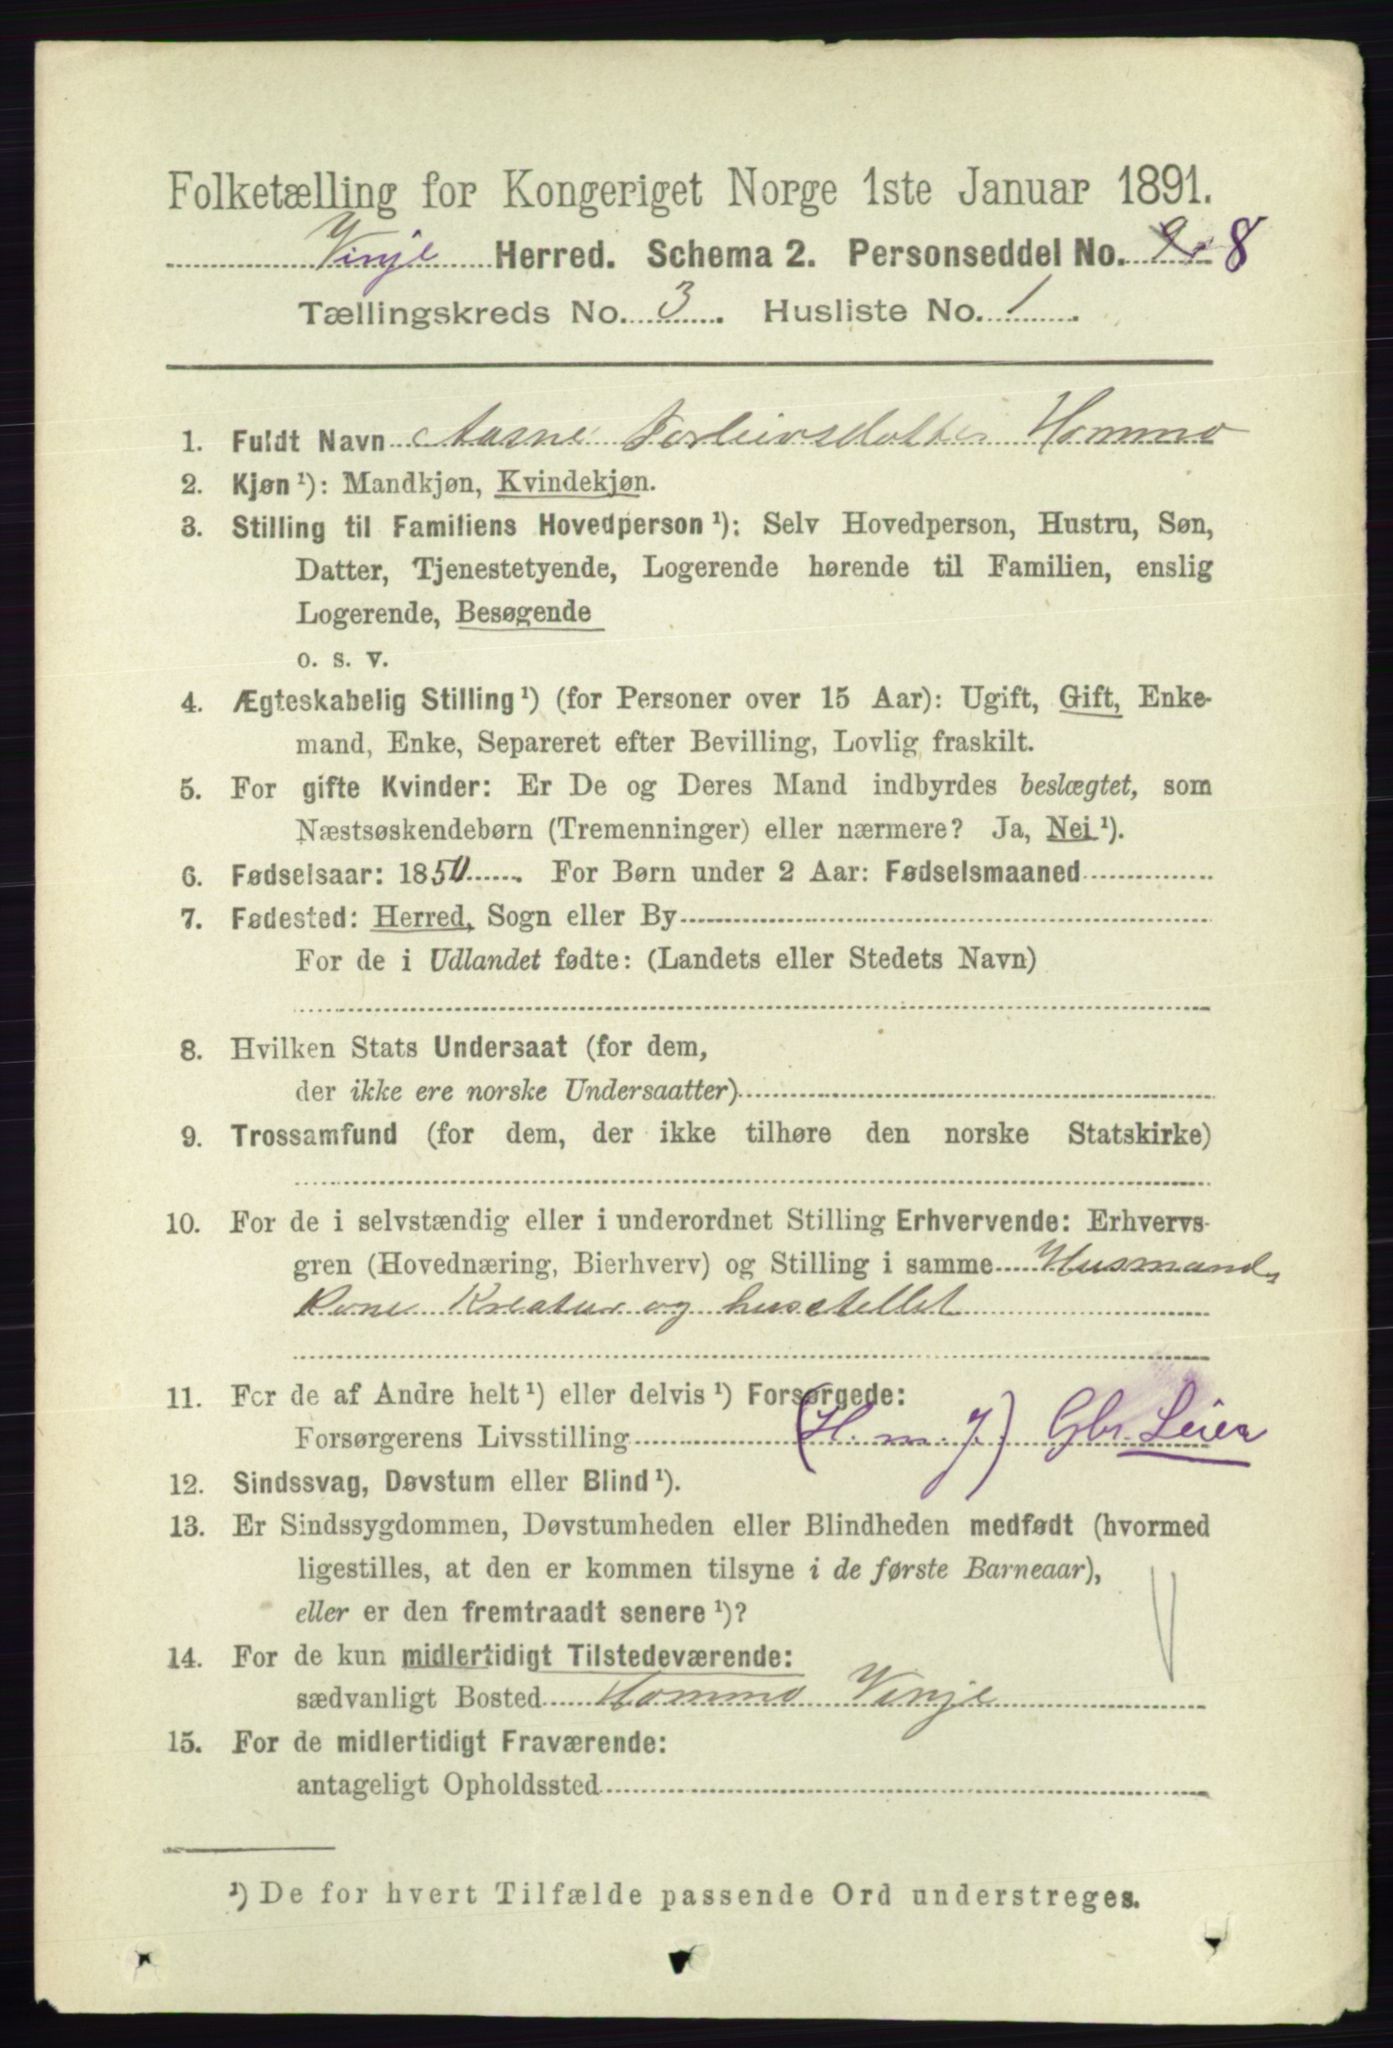 Folketælling for Kongeriget Norge 1ste Januar 1891.
Vinje Herred. Schema 2. Personseddel No. 9 8
Tællingskreds No. 3. Husliste No. 1.
1. Fuldt Navn Aasne Torleivsdotter Hommo
2. Kjøn ¹): Mandkjøn, Kvindekjøn.
3. Stilling til Familiens Hovedperson ¹): Selv Hovedperson, Hustru, Søn,
Datter, Tjenestetyende, Logerende hørende til Familien, enslig
Logerende, Besøgende
o. s. v.
4. Ægteskabelig Stilling ¹) (for Personer over 15 Aar): Ugift, Gift, Enke-
mand, Enke, Separeret efter Bevilling, Lovlig fraskilt.
5. For gifte Kvinder: Er De og Deres Mand indbyrdes beslægtet, som
Næstsøskendebørn (Tremenninger) eller nærmere? Ja, Nei ¹).
6. Fødselsaar: 1850. For Børn under 2 Aar: Fødselsmaaned
7. Fødested: Herred, Sogn eller By
For de i Udlandet fødte: (Landets eller Stedets Navn)
8. Hvilken Stats Undersaat (for dem,
der ikke ere norske Undersaatter)
9. Trossamfund (for dem, der ikke tilhøre den norske Statskirke)
10. For de i selvstændig eller i underordnet Stilling Erhvervende: Erhvervs-
gren (Hovednæring, Bierhverv) og Stilling i samme Husmands
Kone Kreatur og husstellet
11. For de af Andre helt ¹) eller delvis ¹) Forsørgede:
Forsørgerens Livsstilling (H. m. J.) Gbr. Leier
12. Sindssvag, Døvstum eller Blind ¹).
13. Er Sindssygdommen, Døvstumheden eller Blindheden medfødt (hvormed
ligestilles, at den er kommen tilsyne i de første Barneaar),
eller er den fremtraadt senere ¹)?
14. For de kun midlertidigt Tilstedeværende:
sædvanligt Bosted Hommo Vinje
15. For de midlertidigt Fraværende:
antageligt Opholdssted
¹) De for hvert Tilfælde passende Ord understreges.